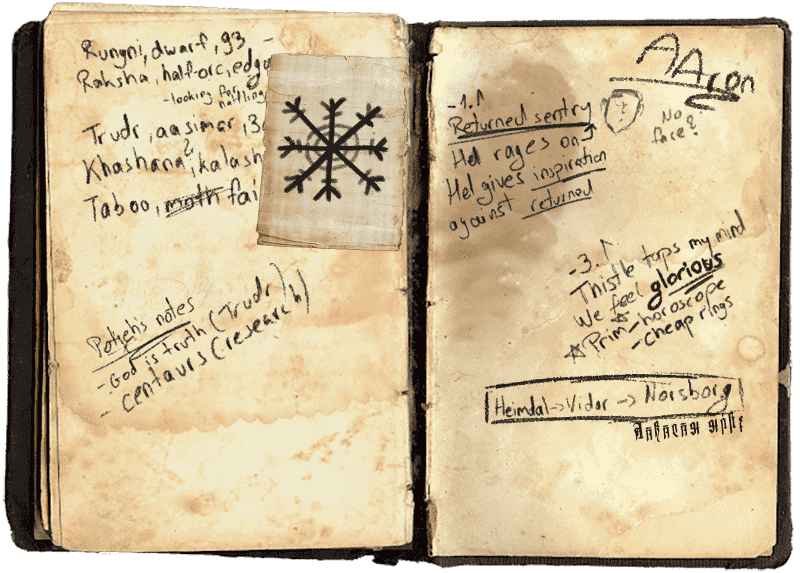 Rungni, dwarf, 93
Raksha, half-orc, edgy
-looking for
halfling
Trudr, aasimar, 3
Khashana?, kalash
Taboo, moth fai
Potjeh's notes
-God is truth (Trudr)
- centaurs (research)
AAron
-1.↑
Returned sentry
Hel rages on→
Hel gives inspiration
against returned
No
face?
-3.↑
Thistle taps my mind
We feel glorious
☆Prim-horoscope
-cheap rings
Heimdal->Vidar-> Norsborg